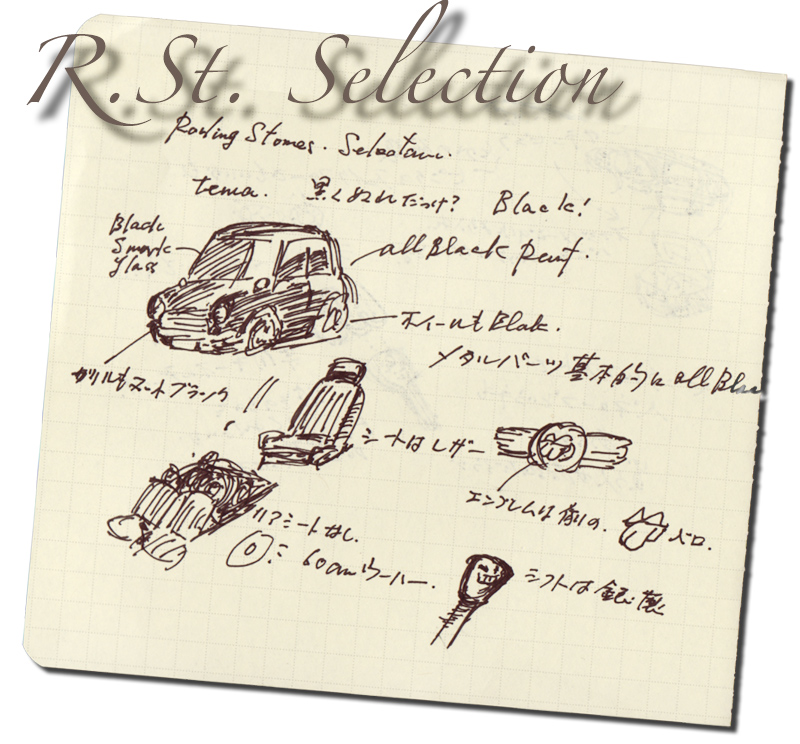 R.St. Selection
Rowling Stones. Selection.
tema. 黒くぬれだっけ? Black!
Black
Smork
glass
all Black Paint.
ホイールもBlak.
メタルパーツ基本的に all Blac
グリルもマットブラック
シートはレザー
エンブレムは例の. ベロ.
リアシートなし.
60cmウーハー.
シフトは銀製